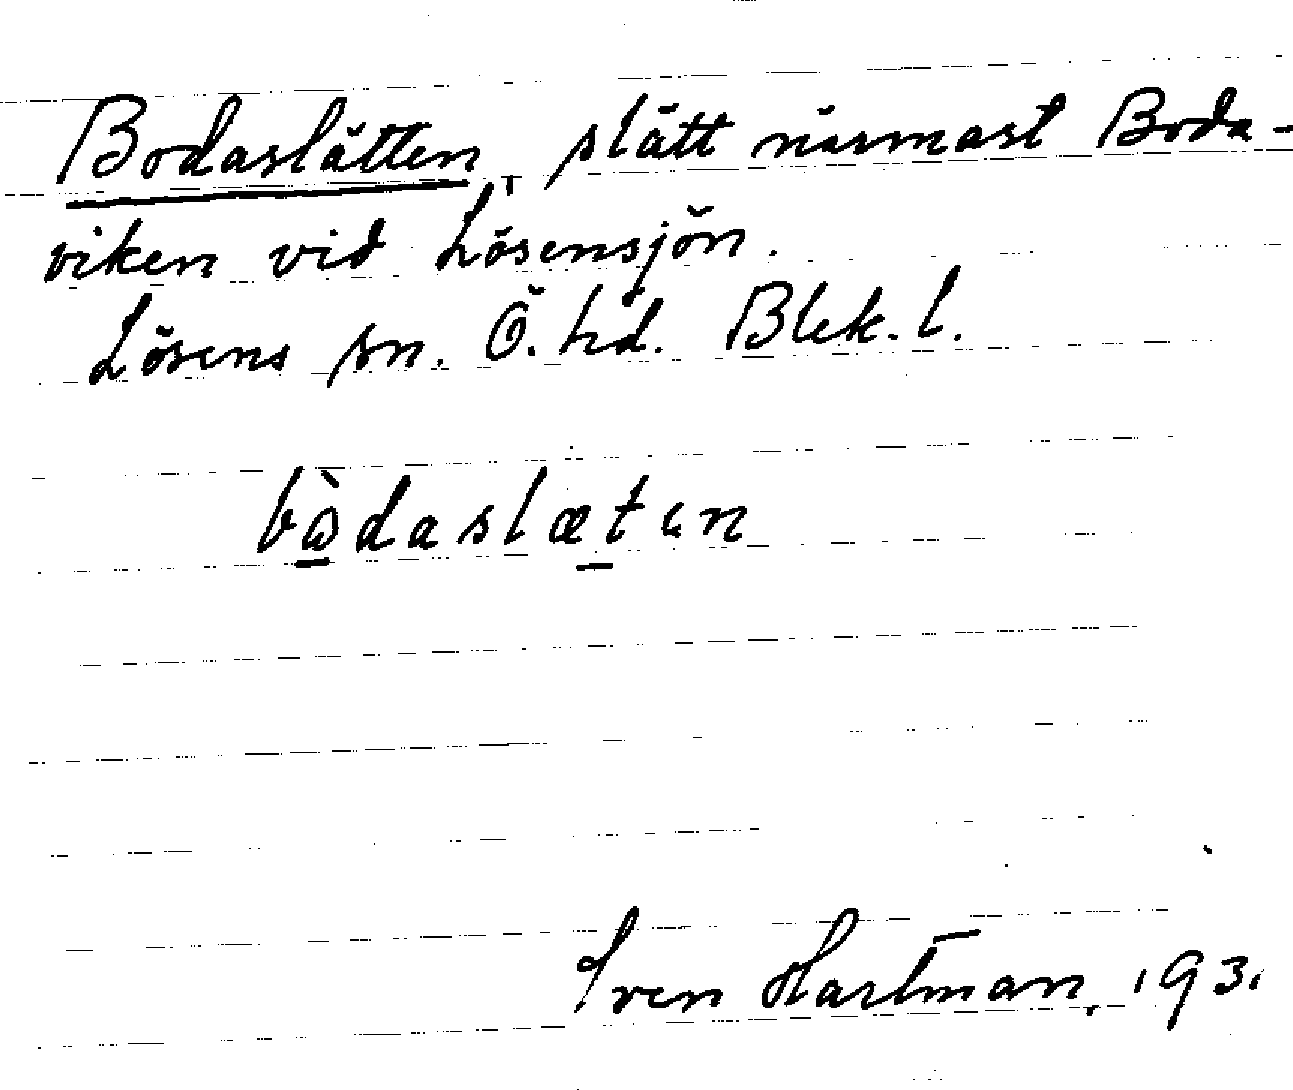 Bodaslätten, slätt närmast Boda-
viken vid Lösensjön.
Lösens sn. Ö. hd. Blek. l.
bὼdaslætɩn
Sven Hartman, 1931